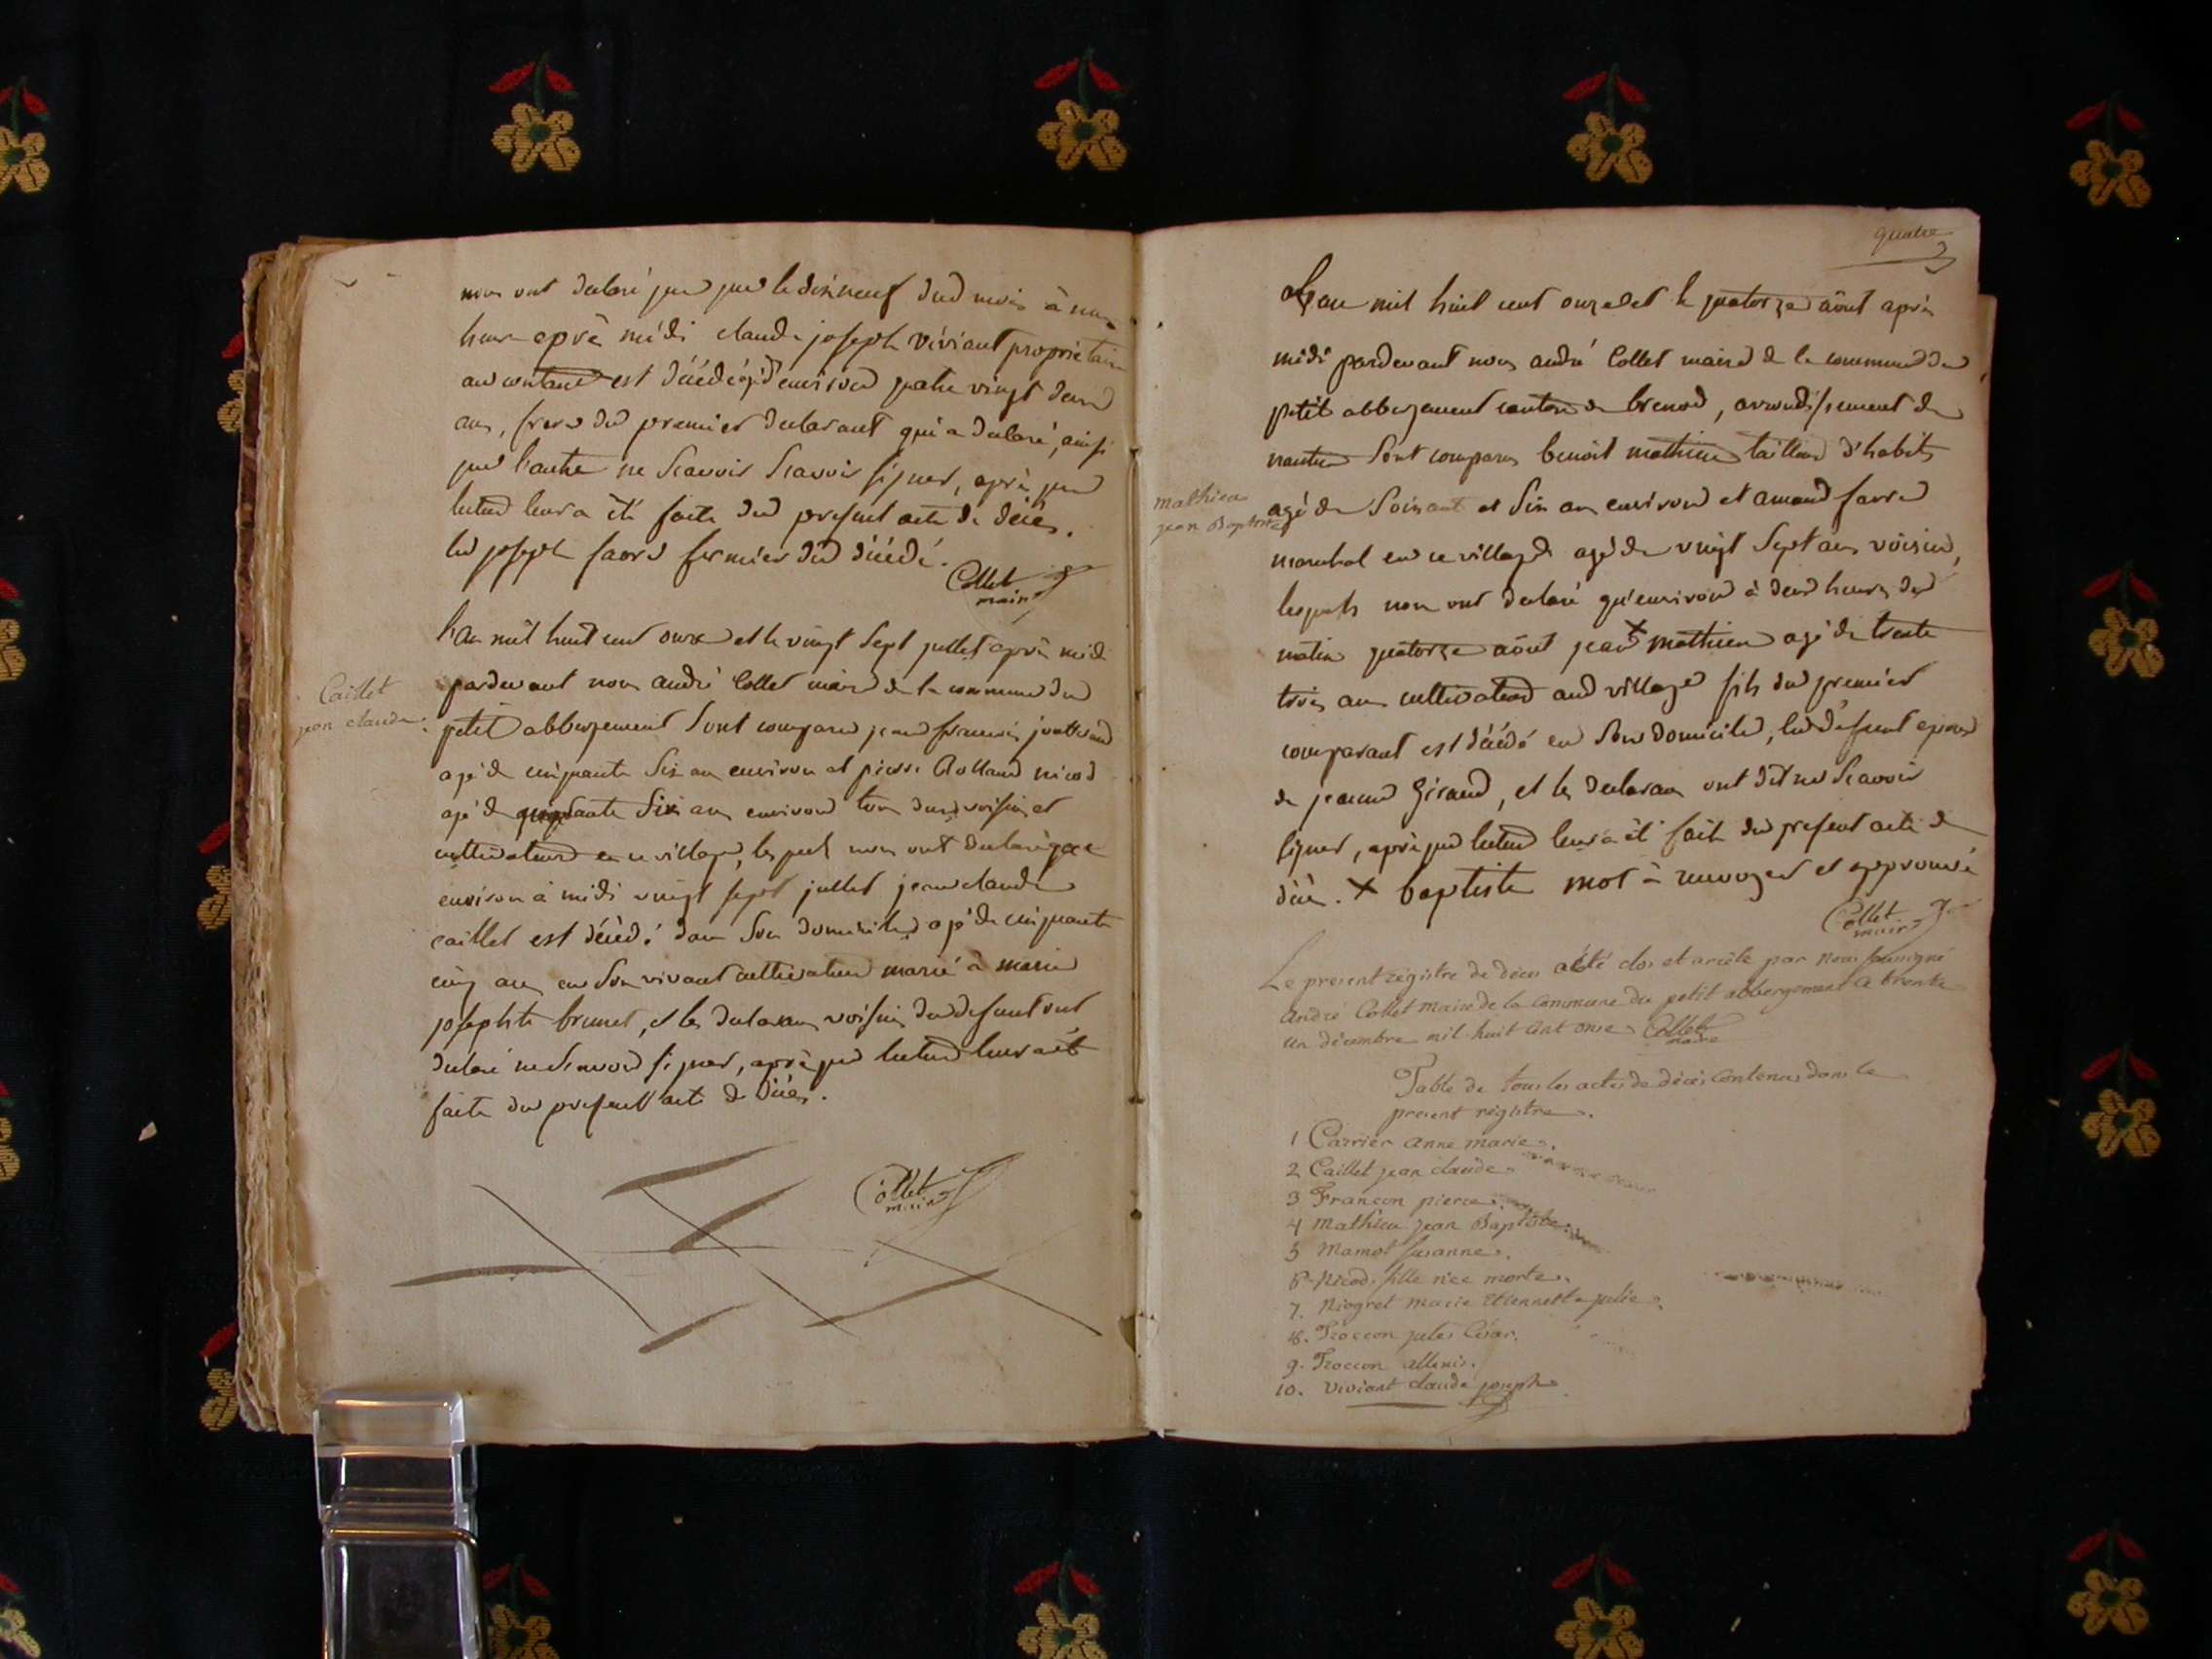 nous ont declaré que que le dixneuf dud mois à une
heure après midi claude joseph viviant propriétaire
est décédé agé d'environ quatre vingt deux
ans, frere du premier declarant qui a declaré, ainsi
que l'autre ne scavoir scavoir signer, après que
lecture leur a été faite du present acte de décès.
joseph favre fermier du décédé.
Collet
maire
l'an mil huit cent onze et le vingt sept juillet après midi
pardevant nous andré Collet maire de la commune du
Caillet
jean claude
petit abbergement sont comparu jean francois
agé de cinquante six an environ et pierre Rolland nicod
agé de six ans environ tous deux voisin et
cultivateurs en ce village, lesquels nous ont declaré que
environ à midi vingt sept juillet jean claude
caillet est décédé dans son domicile agé de cinquante
cinq ans en son vivant cultivateur marié à marie
josephte brunet, et les declarans voisins du defunt ont
declaré ne scavoir signer, après que lecture leur a été
faite du present acte de décès.
Collet
maire
quatre
L'an mil huit cent onze et le quatorze août après
midi pardevant nous andré Collet maire de la commune du
petit abbergement canton de brenod, arrondissement de
nantua sont comparus benoit mathieu tailleur d'habits
mathieu
jean Baptiste
agé de soixant et six an environ et amand favre
marechal en ce village agé de vingt sept ans voisin,
lesquels nous ont declaré qu'environ à deux heures du
matin quatorze août jean X mathieu agé de trente
trois ans cultivateur aud village fils du premier
comparant est décédé en son domicile, led defunt epoux
de jeanne Girand, et les declarans ont dit ne scavoir
signer, après que lecture leur a été faite du present acte de
décès. X baptiste mot à renvoyer et approuvé
Collet
maire
Le present régistre de décès a été clos et arrêté par nous soussigné
andré Collet maire de la commune du petit abbergement le trente
un décembre mil huit cent onze Collet
maire
Table de tous les actes de décès contenus dans le
present régistre.
1 Carrier anne marie.
2 Caillet jean claude.
3 Francon pierre.
4 mathieu jean Baptiste.
5 Mamot susanne.
6 Nicod, fille née morte.
7. Niogret marie Etiennette julie.
8. Troccon jules César.
9. Troccon
10. Viviant claude joseph